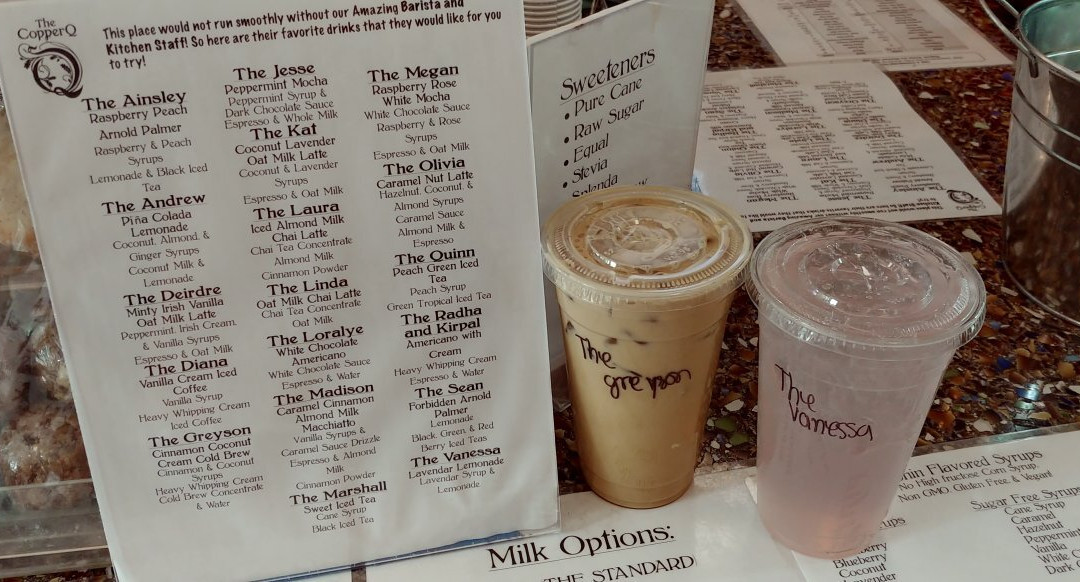 The
CopperQ
This place would not run smoothly without our Amazing Barista and
Kitchen Staff! So here are their favorite drinks that they would like for you
to try!
The Ainsley
Raspberry Peach
Arnold Palmer
Raspberry & Peach
Syrups
Lemonade & Black Iced
Tea
The Andrew
Piña Colada
Lemonade
Coconut, Almond, &
Ginger Syrups
Coconut Milk &
Lemonade
The Deirdre
Minty Irish Vanilla
Oat Milk Latte
Peppermint, Irish Cream,
& Vanilla Syrups
Espresso & Oat Milk
The Diana
Vanilla Cream Iced
Coffee
Vanilla Syrup
Heavy Whipping Cream
Iced Coffee
The Greyson
Cinnamon Coconut
Cream Cold Brew
Cinnamon & Coconut
Syrups
Heavy Whipping Cream
Cold Brew Concentrate
& Water
The Jesse
Peppermint Mocha
Peppermint Syrup &
Dark Chocolate Sauce
Espresso & Whole Milk
The Kat
Coconut Lavender
Oat Milk Latte
Coconut & Lavender
Syrups
Espresso & Oat Milk
The Laura
Iced Almond Milk
Chai Latte
Chai Tea Concentrate
Almond Milk
Cinnamon Powder
The Linda
Oat Milk Chai Latte
Chai Tea Concentrate
Oat Milk
The Loralye
White Chocolate
Americano
White Chocolate Sauce
Espresso & Water
The Madison
Caramel Cinnamon
Almond Milk
Macchiatto
Vanilla Syrups &
Caramel Sauce Drizzle
Espresso & Almond
Milk
Cinnamon Powder
The Marshall
Sweet Iced Tea
Cane Syrup
Black Iced Tea
The Megan
Raspberry Rose
White Mocha
White Chocolate Sauce
Raspberry & Rose
Syrups
Espresso & Oat Milk
The Olivia
Caramel Nut Latte
Hazelnut, Coconut, &
Almond Syrups
Caramel Sauce
Almond Milk &
Espresso
The Quinn
Peach Green Iced
Tea
Peach Syrup
Green Tropical Iced Tea
The Radha
and Kirpal
Americano with
Cream
Heavy Whipping Cream
Espresso & Water
The Sean
Forbidden Arnold
Palmer
Lemonade
Black, Green & Red
Berry Iced Teas
The Vanessa
Lavendar Lemonade
Lavendar Syrup &
Lemonade
Sweeteners
• Pure Cane
• Raw Sugar
• Equal
• Stevia
• Splenda
The
greyson
The
Vanessa
Milk Options:
THE STANDARD
Flavored Syrups
No High fructose Corn Syrup,
Non GMO, Gluten Free & Vegan!
Blueberry
Coconut
Sugar Free Syrups
Cane Syrup
Caramel
Hazelnut
Peppermint
Vanilla
White
Dark